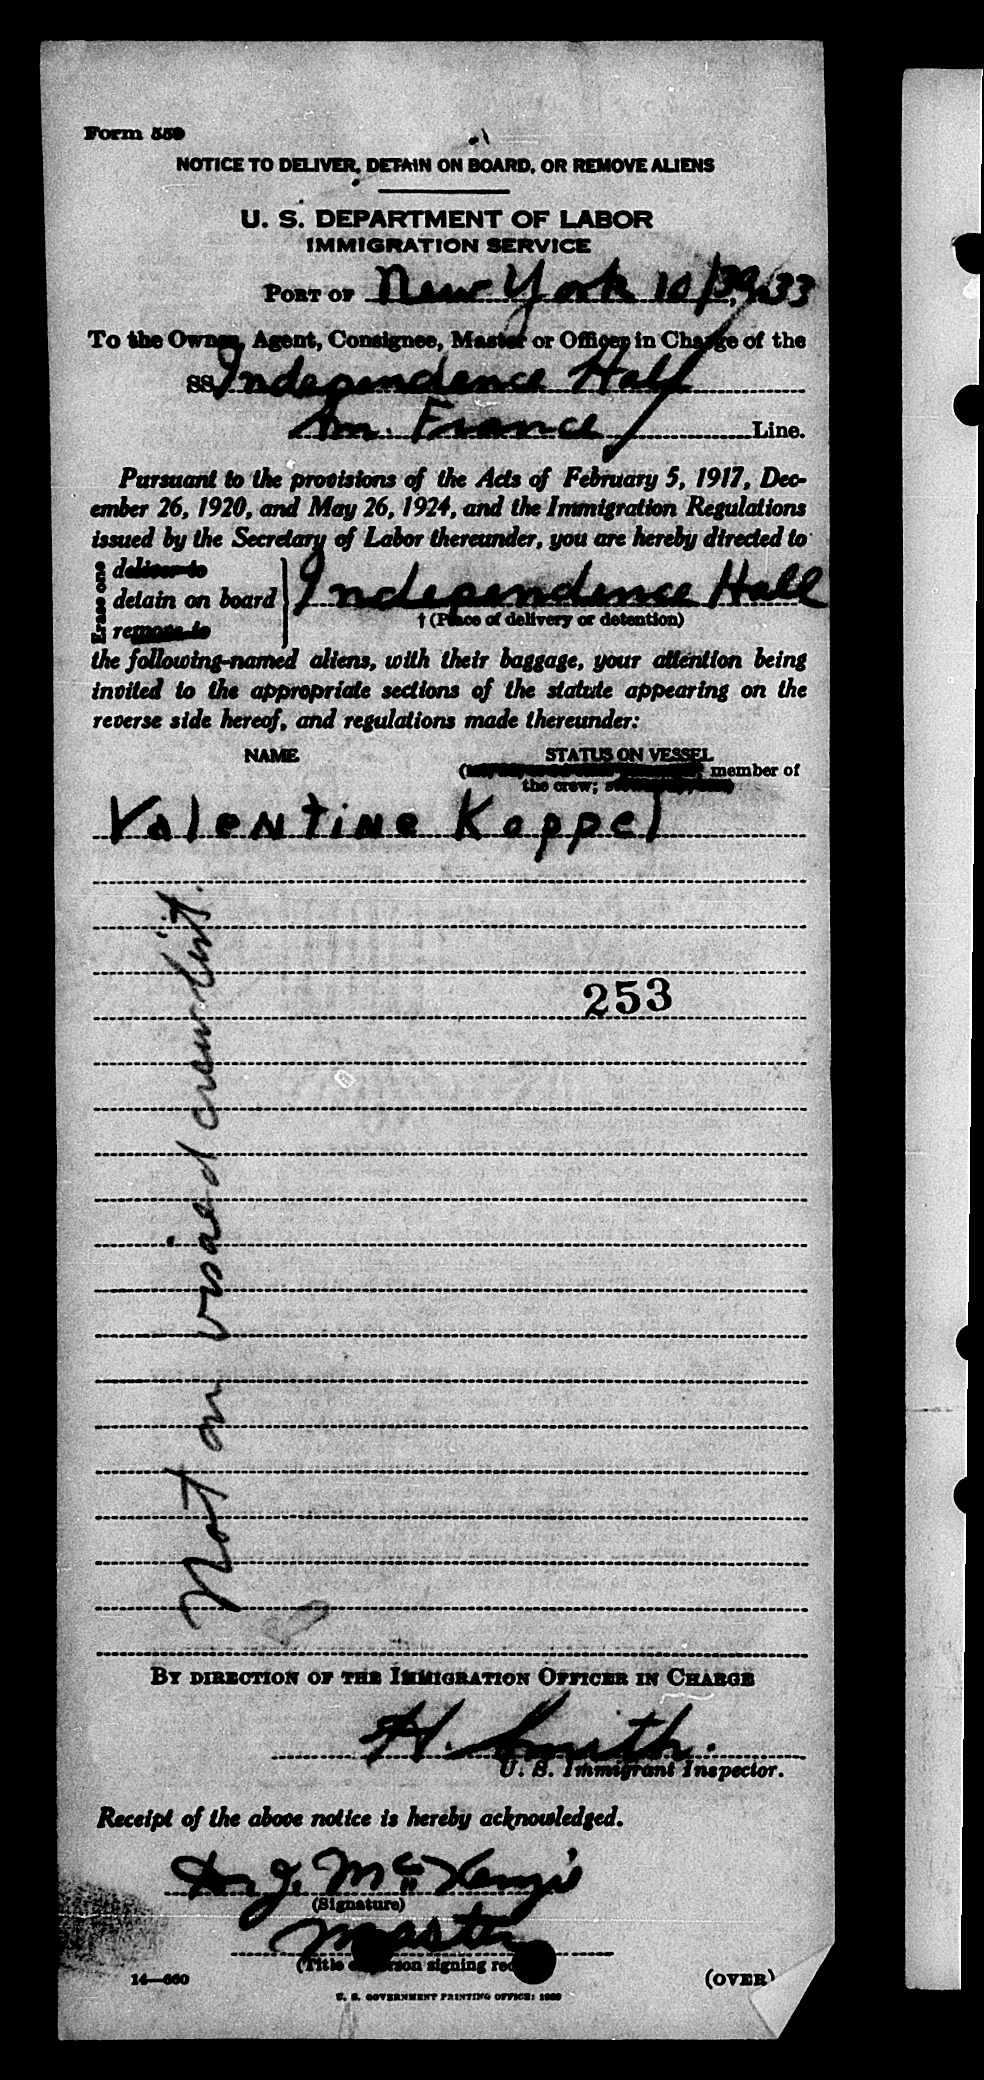 Form 559
NOTICE TO DELIVER, DETAIN ON BOARD, OR REMOVE ALIENS
U. S. DEPARTMENT OF LABOR
IMMIGRATION SERVICE
PORT OF New York 10/30, 1933
To the Owner, Agent, Consignee, Master or Officer in Charge of the
SS Independence Hall
Am. France Line.
Pursuant to the provisions of the Acts of February 5, 1917, Dec-
ember 26, 1920, and May 26, 1924, and the Immigration Regulations
issued by the Secretary of Labor thereunder, you are hereby directed to
Erase one
deliver to
detain on board Independence Hall
remove to
† (Place of delivery or detention)
the following-named aliens, with their baggage, your attention being
invited to the appropriate sections of the statute appearing on the
reverse side hereof, and regulations made thereunder:
NAME STATUS ON VESSEL
member of
the crew;
Valentine Koppel
253
Not on visaed crew list.
BY DIRECTION OF THE IMMIGRATION OFFICER IN CHARGE
H. Smith.
U. S. Immigrant Inspector.
Receipt of the above notice is hereby acknowledged.
J. McKenzie
(Signature)
Master
(Title of person signing rec
14—660 (OVER)
U. S. GOVERNMENT PRINTING OFFICE: